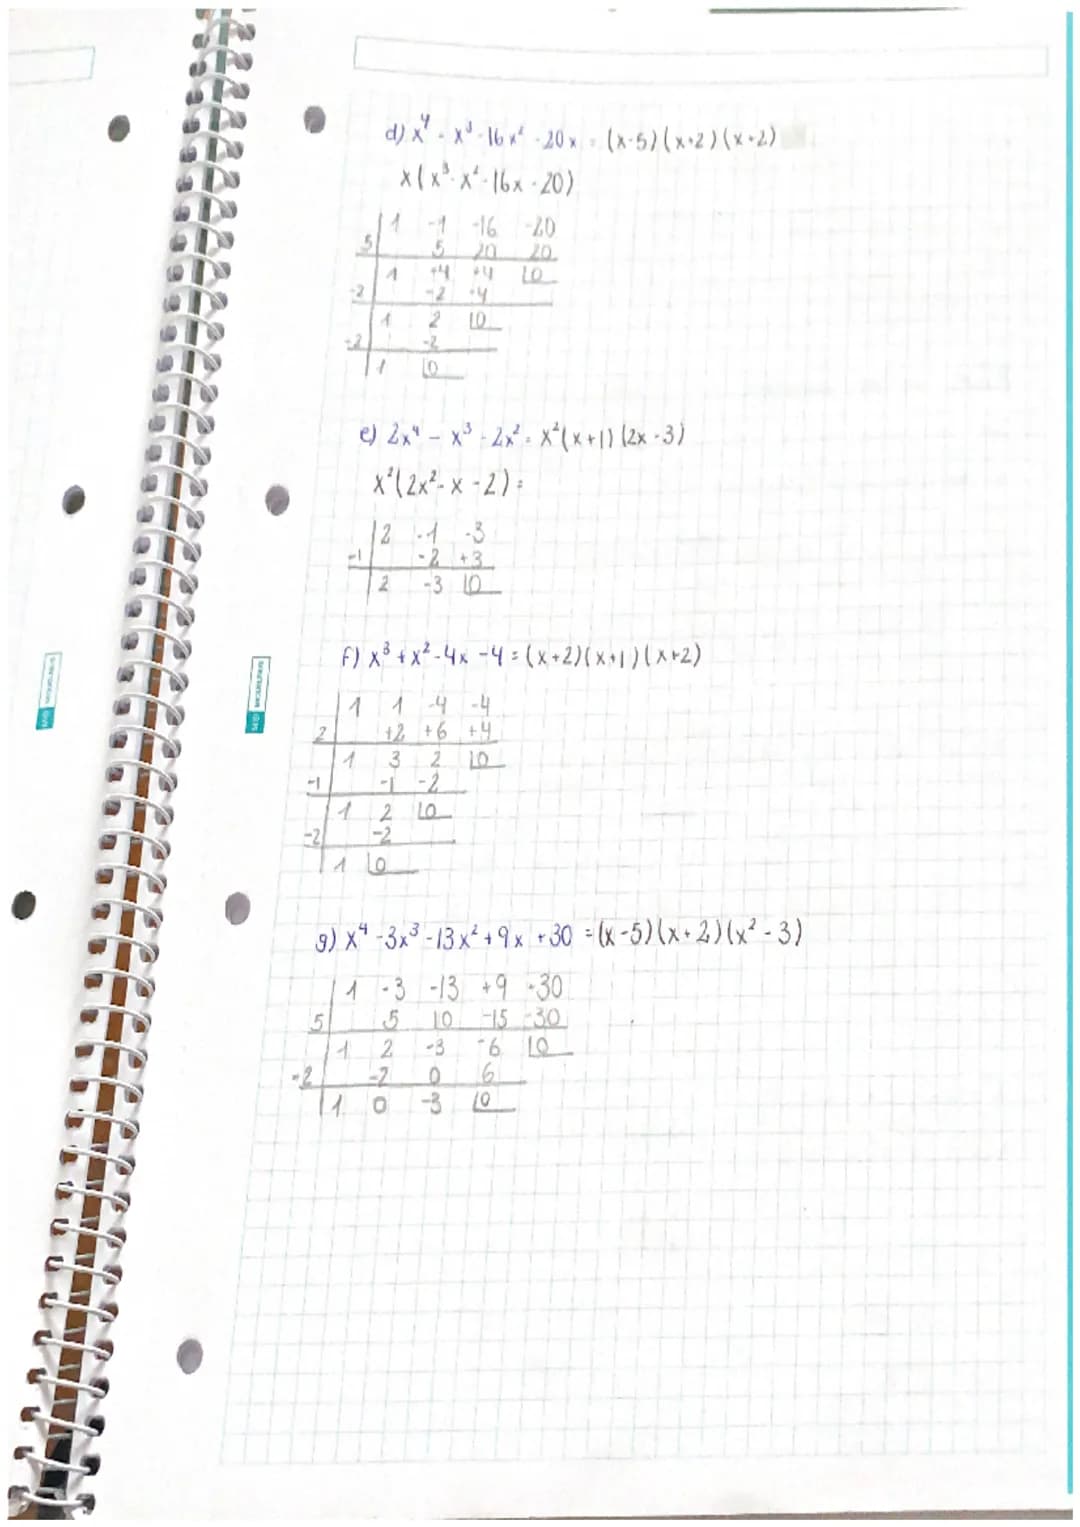 d) x⁴ - x³ - 16x² - 20x = (x-5)(x+2)(x+2)
x(x³ - x² - 16x - 20)
1 -1 -16 -20
5 5 20 20
1 +4 +4 0
-2 -2 -4
1 2 0
-2 -2
1 0
e) 2x⁴ - x³ - 2x² = x²(x+1)(2x-3)
x²(2x² - x - 2) =
2 -1 -3
-1 -2 +3
2 -3 0
f) x³ + x² - 4x - 4 = (x+2)(x+1)(x+2)
1 1 -4 -4
2 +2 +6 +4
1 3 2 0
-1 -1 -2
1 2 0
-2 -2
1 0
g) x⁴ - 3x³ - 13x² + 9x + 30 = (x-5)(x+2)(x² - 3)
1 -3 -13 +9 +30
5 5 10 -15 -30
1 2 -3 -6 0
-2 -2 0 6
1 0 -3 0